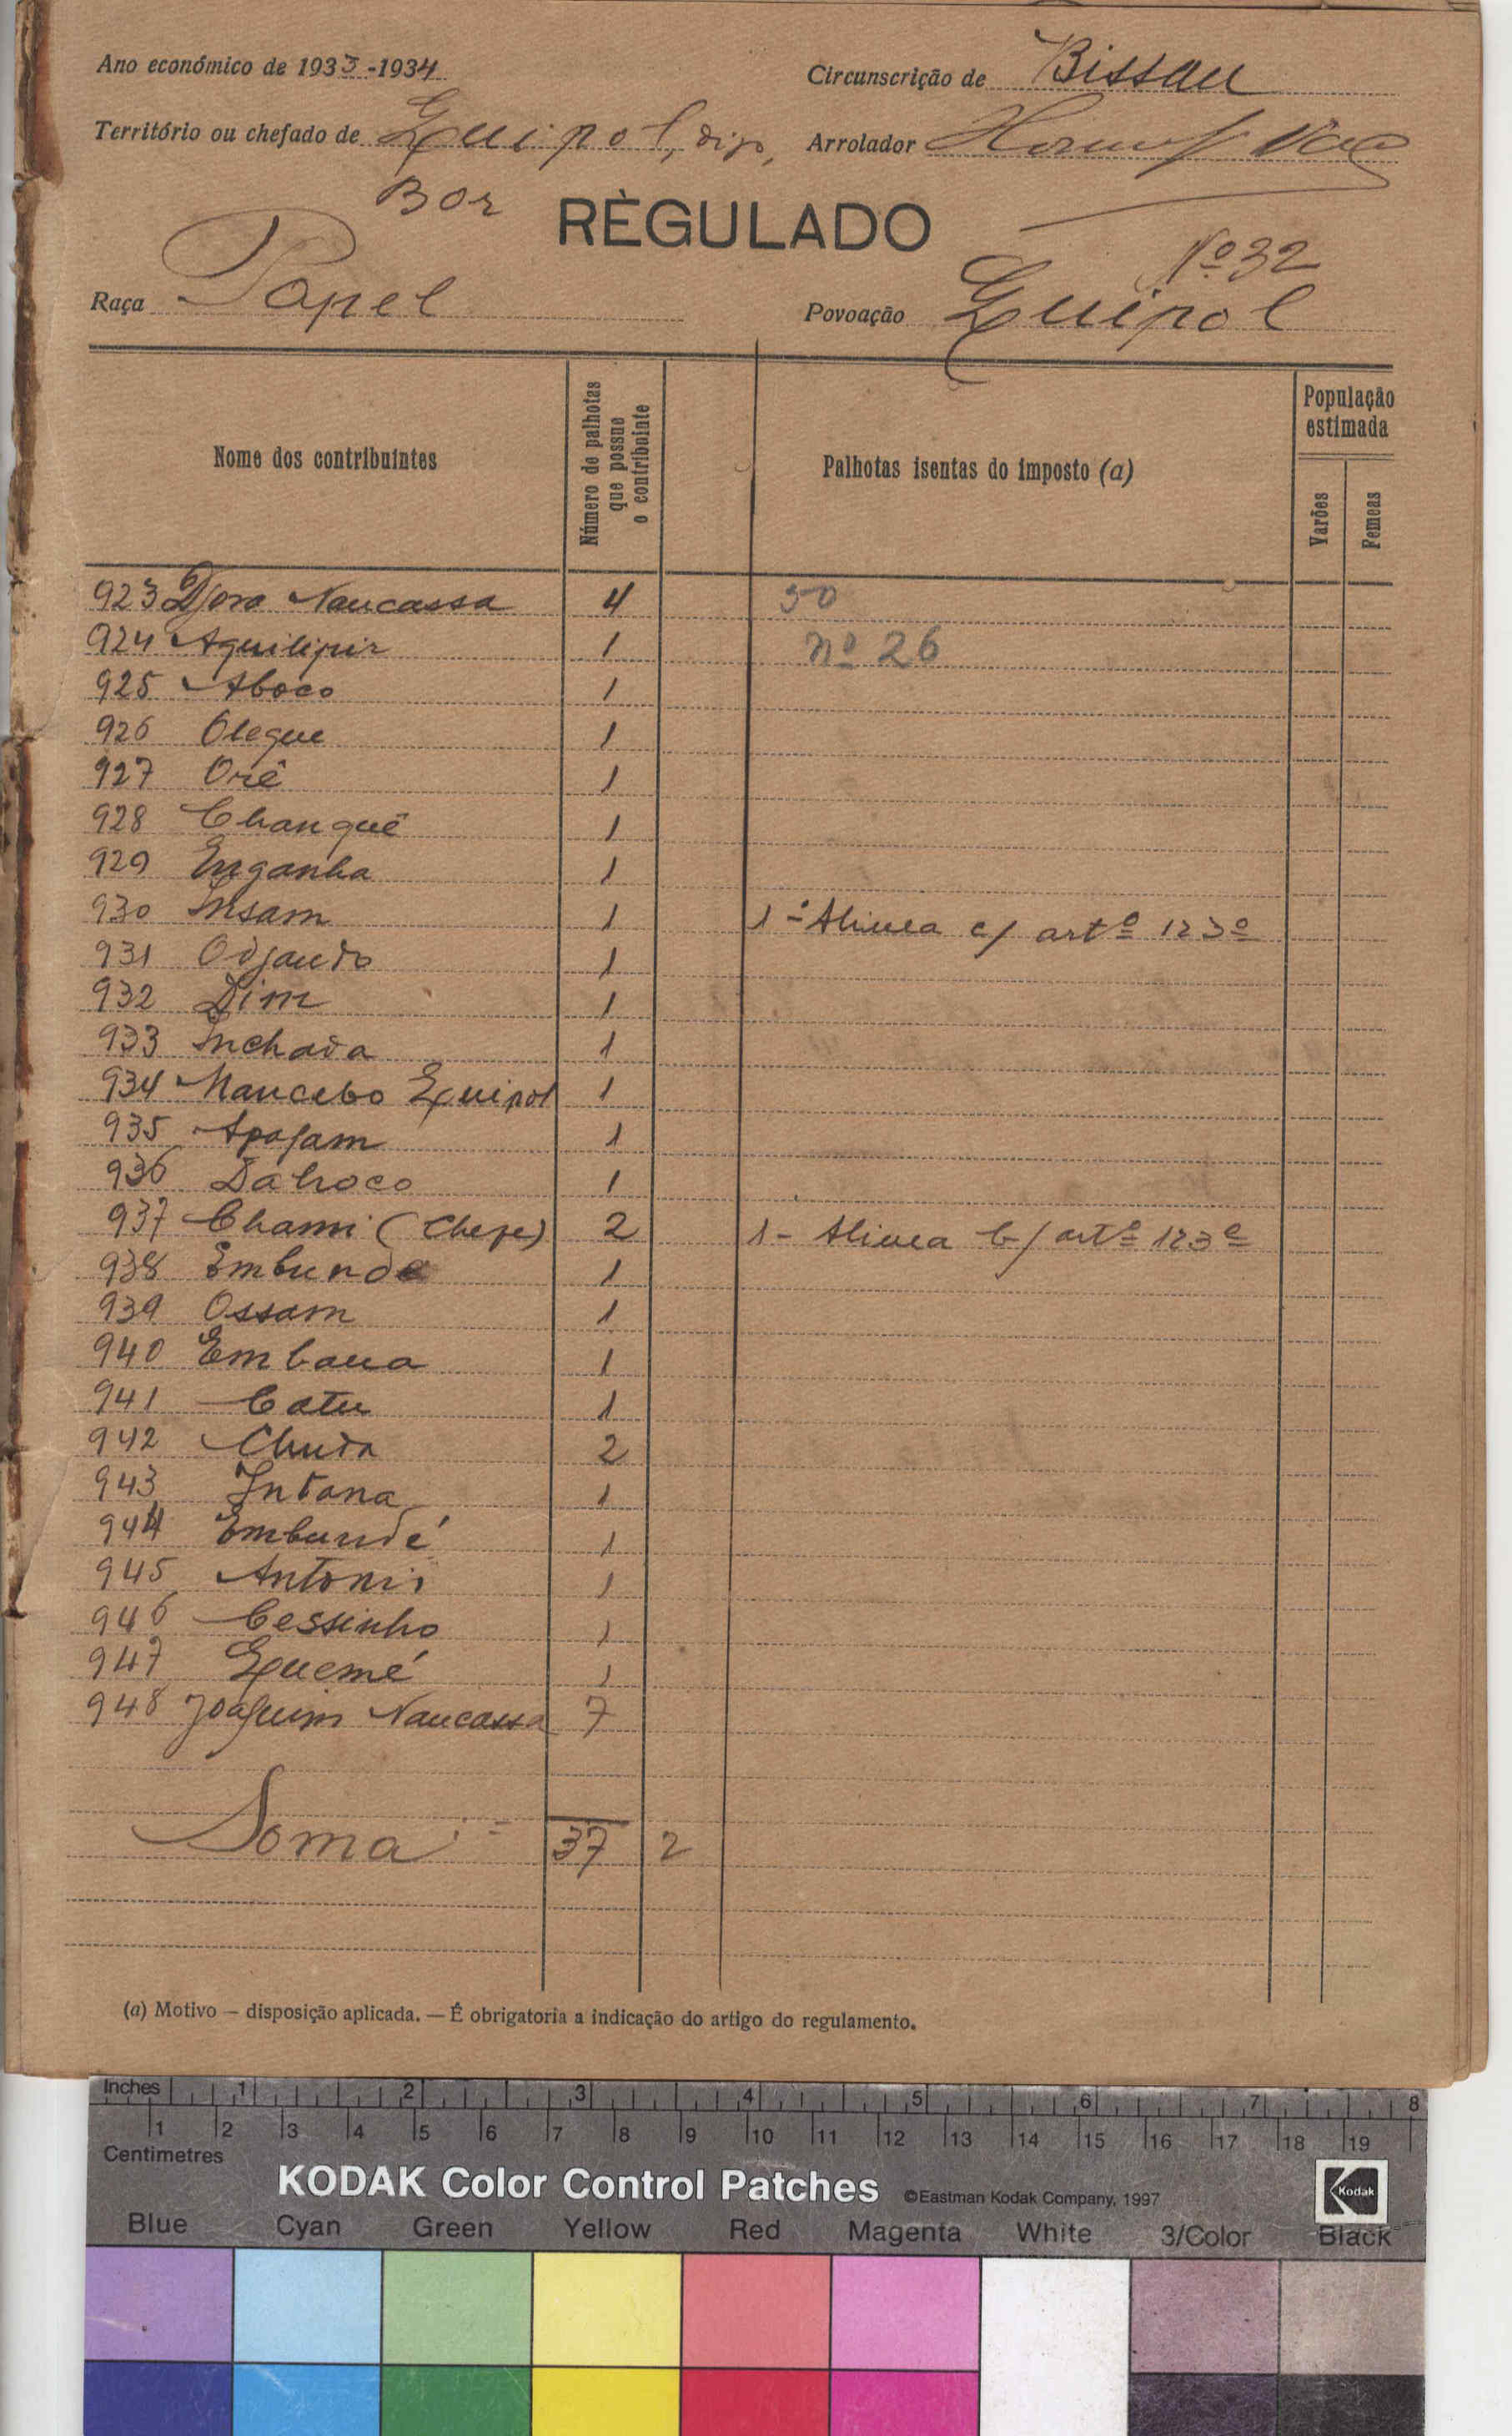 Ano económico de 1933-1934
Circunscrição de Bissau
Território ou chefado de Quipol, digo,
Arrolador
Bor
RÈGULADO
Nº 32
Raça Papel
Povoação Quipol
Nome dos contribuintes
Número de palhotas que possue o contribuinte
Palhotas isentas do imposto (a)
População estimada
Varões
Femeas
923 Djora Naucassa 4 50
924 Aquilipir 1 nº 26
925 Aboco 1
926 Olegue 1
927 Orê 1
928 Chanquê 1
929 Enganha 1
930 Insam 1 1- Alinea c/ artº 123º
931 Odjaudo 1
932 Dim 1
933 Inchada 1
934 Mancebo Quipol 1
935 Apajam 1
936 Dahoco 1
937 Chami (Chefe) 2 1- Alinea b/ artº 123º
938 Embunde 1
939 Ossam 1
940 Embaua 1
941 Catu 1
942 Chuda 2
943 Intona 1
944 Embundé 1
945 Antoni 1
946 Cessinho 1
947 Quemé 1
948 Joaquim Naucassa 7
Soma = 37 2
(a) Motivo — disposição aplicada. — É obrigatoria a indicação do artigo do regulamento.
Inches 1 2 3 4 5 6 7 8
1 2 3 4 5 6 7 8 9 10 11 12 13 14 15 16 17 18 19
Centimetres
KODAK Color Control Patches ©Eastman Kodak Company, 1997 Kodak
Blue Cyan Green Yellow Red Magenta White 3/Color Black